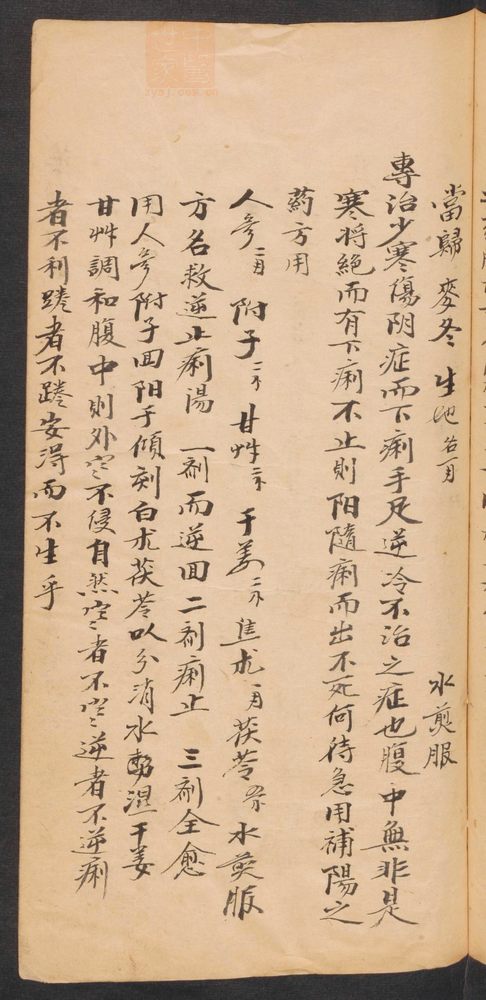 當歸 麥冬 生地 各一兩 水煎服
專治少寒傷阴症而下痢手足逆冷不治之症也腹中無非是
寒将絕而有下痢不止則阳隨痢而出不死何待急用補陽之
药方用
人參 二兩 附子 二个 甘艸 二个 干姜 二个 焦术 一兩 茯苓 水煎服
方名救逆止痢湯 一剤而逆回二剤痢止 三剤全愈
用人參附子回阳于傾刻白术茯苓以分消水勢湿干姜
甘艸調和腹中則外寒不侵自然寒者不寒逆者不逆痢
者不利踡者不踡安淂而不生乎